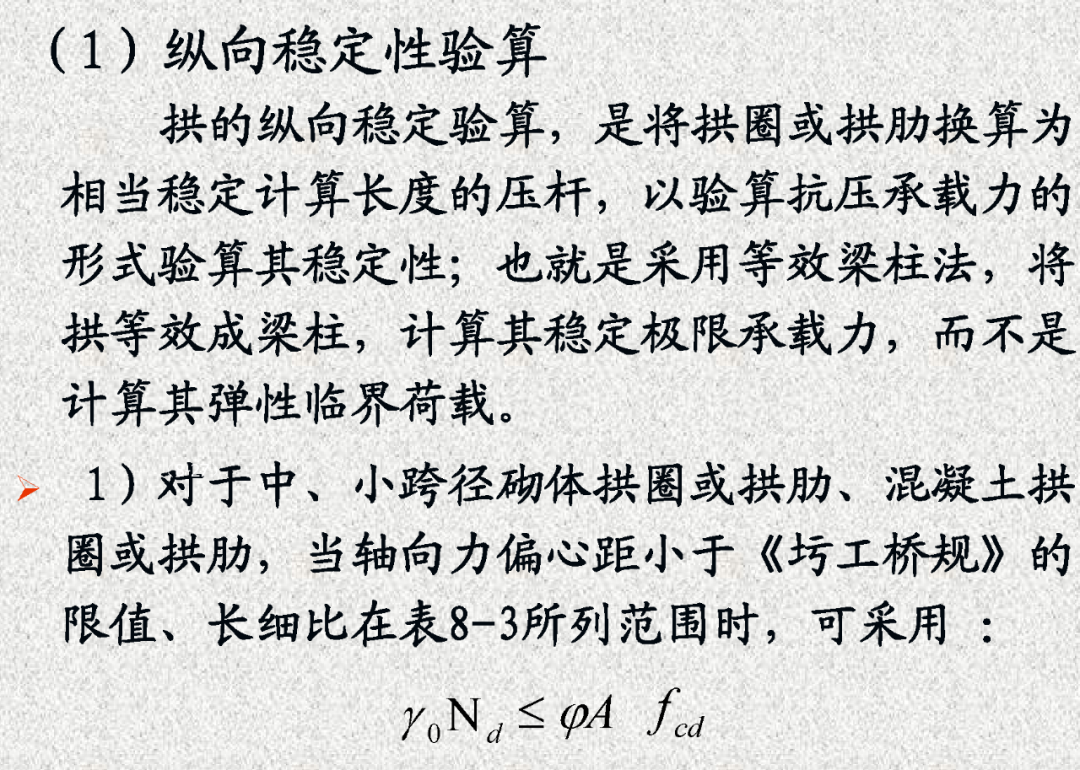 （1）纵向稳定性验算
拱的纵向稳定验算，是将拱圈或拱肋换算为
相当稳定计算长度的压杆，以验算抗压承载力的
形式验算其稳定性；也就是采用等效梁柱法，将
拱等效成梁柱，计算其稳定极限承载力，而不是
计算其弹性临界荷载。
1）对于中、小跨径砌体拱圈或拱肋、混凝土拱
圈或拱肋，当轴向力偏心距小于《圬工桥规》的
限值、长细比在表8-3所列范围时，可采用 ：
γ₀N_d ≤ φA f_cd